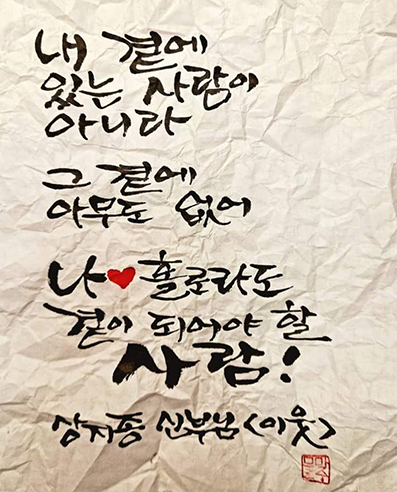 내 곁에
있는 사람이
아니라
그 곁에
아무도 없어
나♥홀로라도
곁이 되어야 할
사람!
상지종 신부님<이웃>